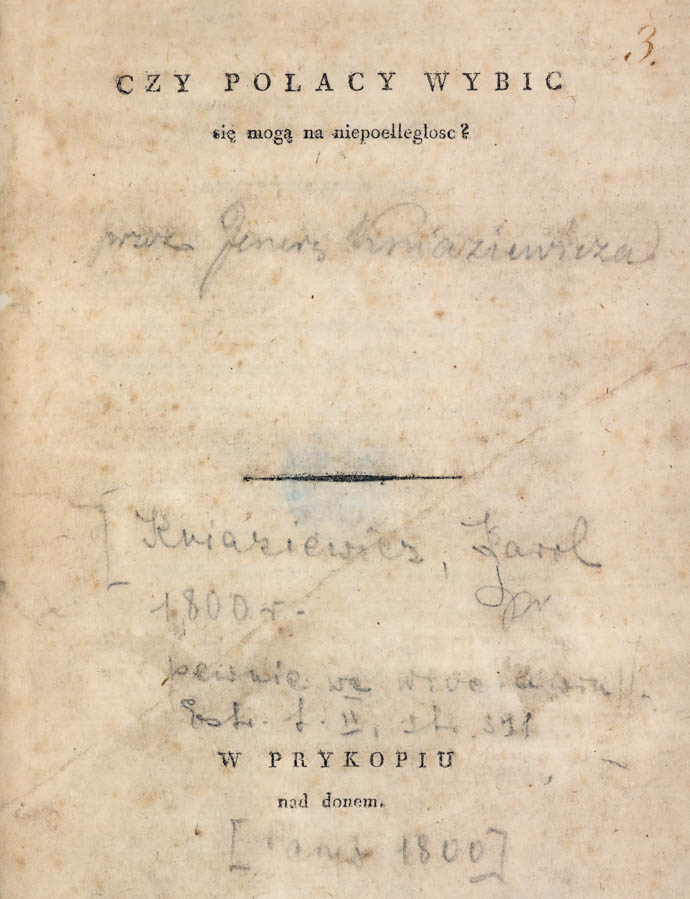 3.
CZY POLACY WYBIC
się mogą na niepoelległosc?
przez Jener. Kniaziewicza
[Kniaziewicz, Karol
1800 r.
pewnie we Wrocławiu
Estr. t. II, st. 391
W PRYKOPIU
nad donem.
[Paryż 1800]